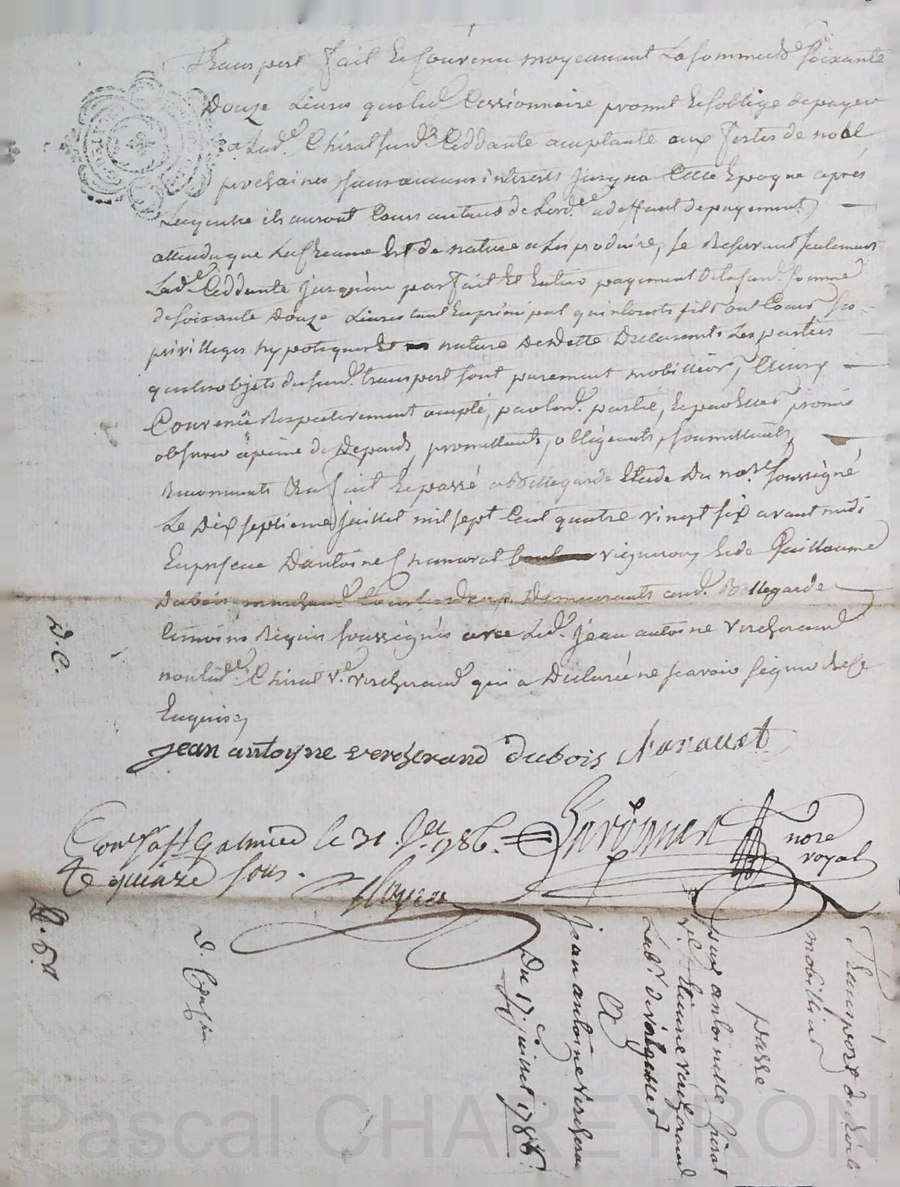 Transport fait et Convenu moyennant La somme de soixante
Douze Livres que led. Cessionnaire promet et s'oblige de payer
a Lad. Chirat susd. Ceddante aux festes de noel
prochaines sans aucuns interets jusqua Cette Epoque après
Laquelle ils auront Cours au taux de Lord. a deffaut de payement
attendu que La Creance est de nature a Les produire, se Reservant seulement
Lad. Ceddante jusqu'au parfait et Entier payement de la susd. somme
de soixante Douze Livres tant En principal qu'interets s'ils ont Cours ses
privilleges hypoteques et nature de dette Declarants Les parties
que les objets du susd. transport sont purement mobilliers, Ainsy
Convenu Respectivement accepté, par lesd. parties, Et par Elles promis
observer à peine de Depends, promettants, obligeants, soumettants,
Renonceants Ainsi fait Et passé a Bellegarde Etude Du nore. soussigné
Le Dix septieme juillet mil sept Cent quatre vingt six avant midi
En presence D'antoine vigneron, Et de Guillaume
Dubois marchand Demeurants aud. Bellegarde
temoins Requis soussignés avec Led. jean antoine vercherand
non lad. Chirat ve. vercherand qui a Declaré ne scavoir signer De ce
Enquise,
jean antoyne vercherand dubois
D. C.
Con. a St Galmier le 31 Jet 1786.
nore
royal
quinze sous.
Transport de droits
mobilliers
passé
par antoinette Chirat
ve. Etienne vercherand
Lab.
A
jean antoine vercherand
Du 17 juillet 1786.
Pascal CHAREYRON